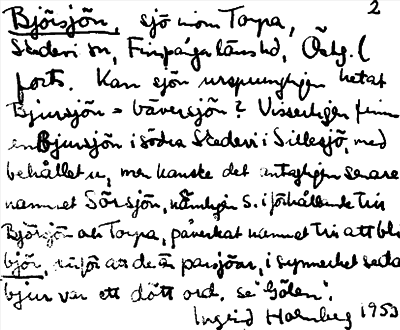 Björsjön, sjö inom Torpa, 2
Skedevi sn, Finspånga läns hd, Östg. (
forts. Kan sjön ursprungligen hetat
Bjursjön = bäversjön? Visserligen finns
en Bjursjön i södra Skedevi i Sillesjö, med
behållet u, men kanske det antagligen senare
namnet Sörsjön, nämligen S. i förhållande till
Björsjön och Torpa, påverkat namnet till att bli
björ, att de är parsjöar, i synnerhet sedan
bjur var ett dött ord. se "Gölen".
Ingrid Holmberg 1953